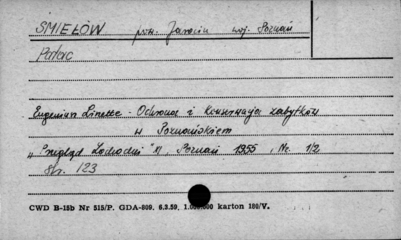 ŚMIEŁÓW pow. Jarocin woj. Poznań
Pałac
Eugeniusz Linette - Ochrona i konserwacja zabytków
w Poznańskiem
"Przegląd Zachodni", Poznań 1955, Nr. 1/2
Str. 123
CWD B-15b Nr 515/P. GDA-809. 6.3.59. 1.000.000 karton 180/V.